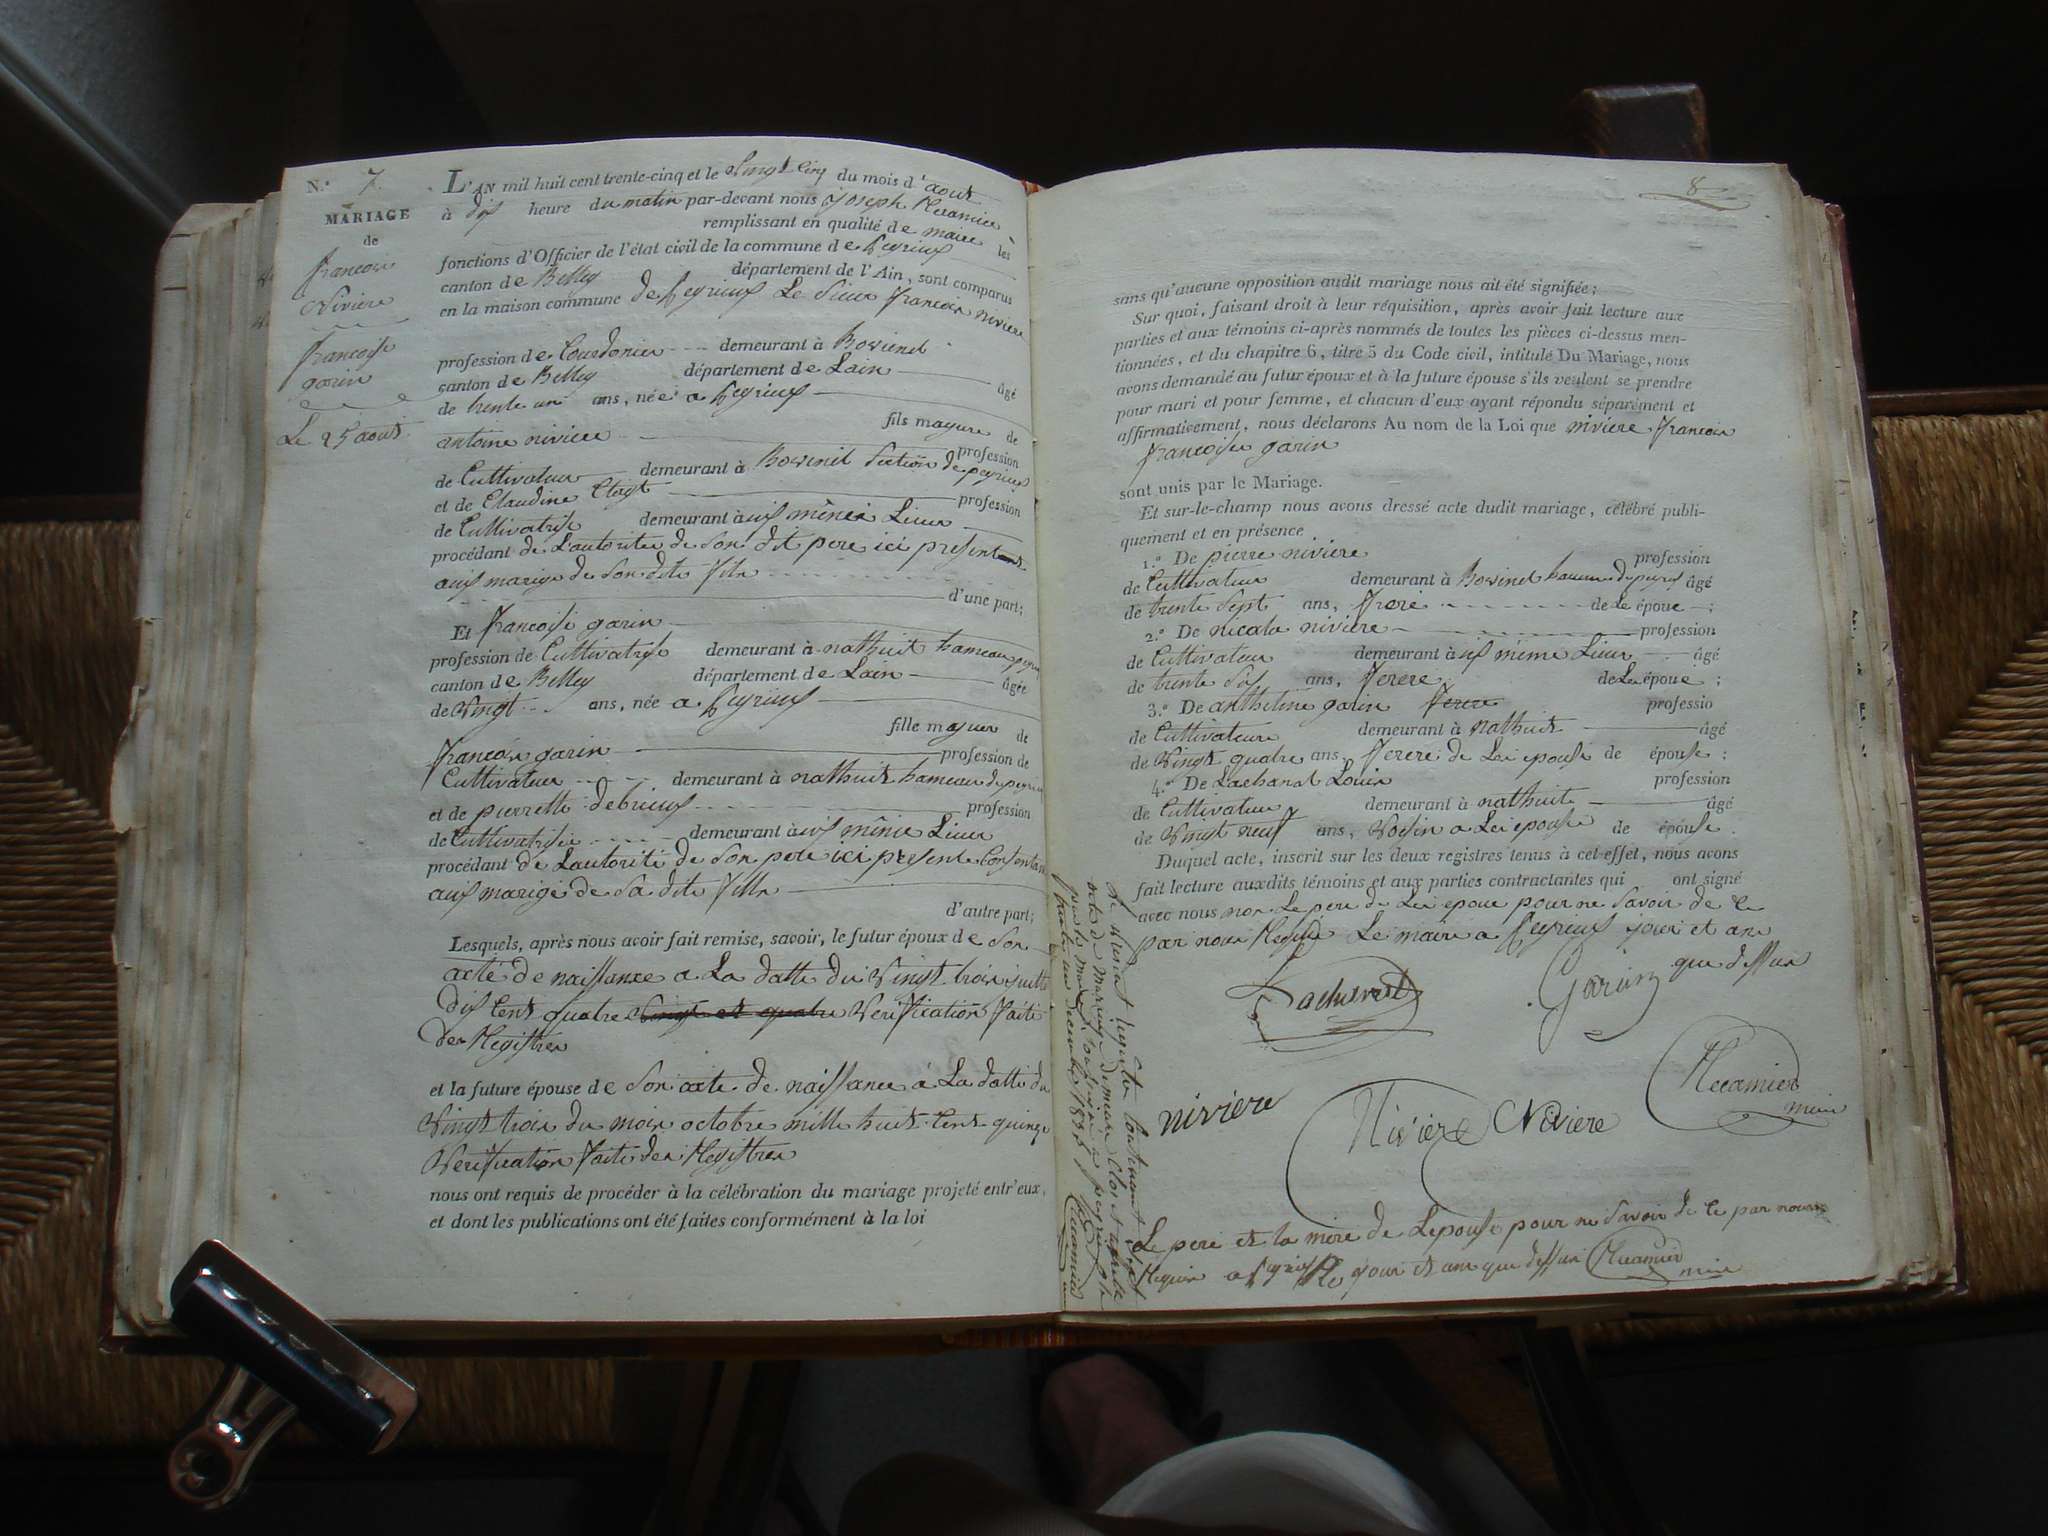 N.° 7.
MARIAGE
de
francois
Niviere
francoise
garin
Le 25 aout
L'AN mil huit cent trente-cinq et le vingt cinq du mois d'aout
à dix heure du matin par-devant nous joseph Recamier
remplissant en qualité de maire les
fonctions d'Officier de l'état civil de la commune de peyrieux
canton de Belley département de l'Ain, sont comparus
en la maison commune de peyrieux Le Sieur francois niviere
profession de Courdonier demeurant à Bovinel
canton de Belley département de Lain âgé
de trente un ans, née a peyrieux
fils mayure de
antoine niviere profession
de Cultivateur demeurant à Bovinel Section de peyrieux
et de Claudine profession
de Cultivatrise demeurant à aux même Lieux
procédant de L'autoritee de Son dit pere ici present
aux marige de Son dits fils
d'une part;
Et francoise garin
profession de Cultivatrise demeurant à nathuit hameau
canton de Belley département de Lain âgée
de Vingt ans, née a peyrieux
fille mayure de
francois garin profession de
Cultivateur demeurant à nathuit hameau de peyrieux
et de pierrette debrieux profession
de Cultivatrise demeurant à aux même Lieux
procédant de Lautorité de Son pere ici presente
aux marige de Sa dite fille
d'autre part;
Lesquels, après nous avoir fait remise, savoir, le futur époux de Son
acte de naissance a La datte du Vingt trois
dix Cent quatre vingt et quatre Verification faite
des Registres
et la future épouse de Son acte de naissance à La datte du
Vingt trois du mois octobre mille huit Cent quinze
Verification faite des Registres
nous ont requis de procéder à la célébration du mariage projeté entr'eux,
et dont les publications ont été faites conformément à la loi
8
sans qu'aucune opposition audit mariage nous ait été signifiée;
Sur quoi, faisant droit à leur réquisition, après avoir fait lecture aux
parties et aux témoins ci-après nommés de toutes les pièces ci-dessus men-
tionnées, et du chapitre 6, titre 5 du Code civil, intitulé Du Mariage, nous
avons demandé au futur époux et à la future épouse s'ils veulent se prendre
pour mari et pour femme, et chacun d'eux ayant répondu séparément et
affirmativement, nous déclarons Au nom de la Loi que niviere francois
francoise garin
sont unis par le Mariage.
Et sur-le-champ nous avons dressé acte dudit mariage, célébré publi-
quement et en présence
1.° De pierre niviere profession
de Cultivateur demeurant à Bovinel âgé
de trente Sept ans, frere de Le époue ;
2.° De nicola niviere profession
de Cultivateur demeurant à aux même Lieux âgé
de trente Six ans, ferere de Le époue ;
3.° De anthelme garin ferere professio
de Cultivateure demeurant à nathuit âgé
de Vingt quatre ans, ferere de Lei epouse de épouse ;
4.° De Lachanal Louis profession
de Cultivateur demeurant à nathuit âgé
de Vingt neuf ans, Voisin a Lei epouse de épouse.
Duquel acte, inscrit sur les deux registres tenus à cet effet, nous avons
fait lecture auxdits témoins et aux parties contractantes qui ont signé
avec nous non Le pere de Lei epoue pour ne Savoir de Ce
par nous Requis Le maire a peyrieux jour et an
que dessus
Garin
niviere
Niviere
Niviere
Recamier
maire
Le pere et la mere de Lepouse pour ne Savoir de Ce par nous
Requis a Le jour et an que dessus Recamier
maire
Le present registre Contenant
acte de mariage demeure Clos et
par le maire a peyrieux le
trente un decembre 1835 Recamier